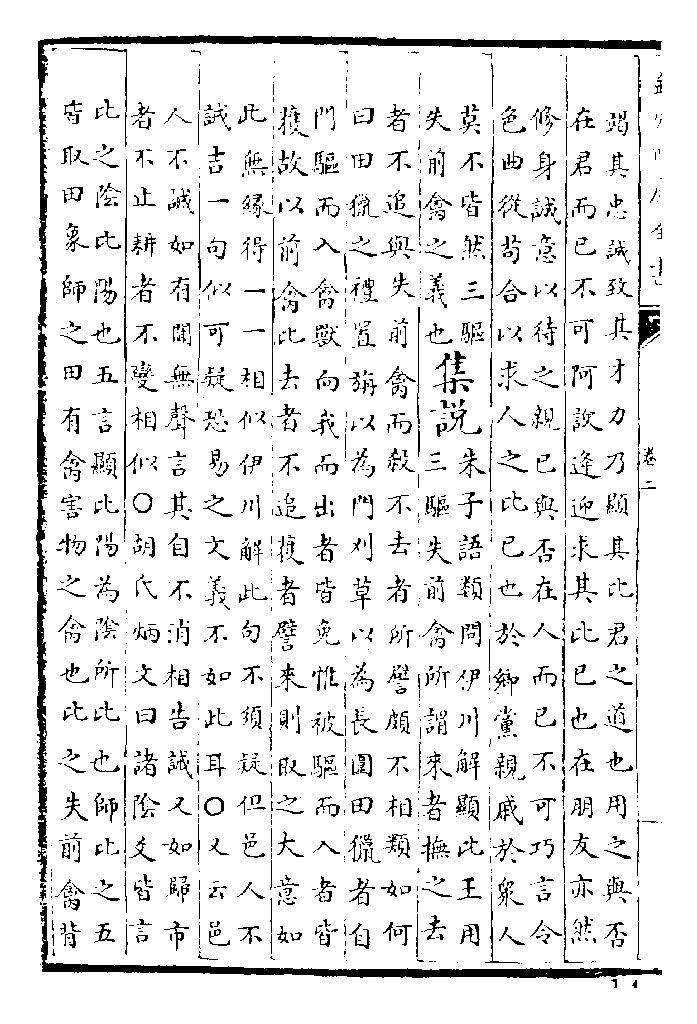 欽定四庫全書 卷二
竭其忠誠致其才力乃顯其比君之道也用之與否
在君而已不可阿諛逢迎求其比已也在朋友亦然
修身誠意以待之親已與否在人而已不可巧言令
色曲從苟合以求人之比已也於鄉黨親戚於衆人
莫不皆然三驅
失前禽之義也
集說
朱子語類問伊川解顯比王用
三驅失前禽所謂來者撫之去
者不追與失前禽而殺不去者所譬頗不相類如何
曰田獵之禮置旃以為門刈草以為長圍田獵者自
門驅而入禽獸向我而出者皆免惟被驅而入者皆
獲故以前禽比去者不追獲者譬來則取之大意如
此無緣得一一相似伊川解此句不須疑但邑人不
誡吉一句似可疑恐易之文義不如此耳○又云邑
人不誡如有聞無聲言其自不消相告誡又如歸市
者不止耕者不變相似○胡氏炳文曰諸陰爻皆言
比之陰比陽也五言顯比陽為陰所比也師比之五
皆取田象師之田有禽害物之禽也比之失前禽背